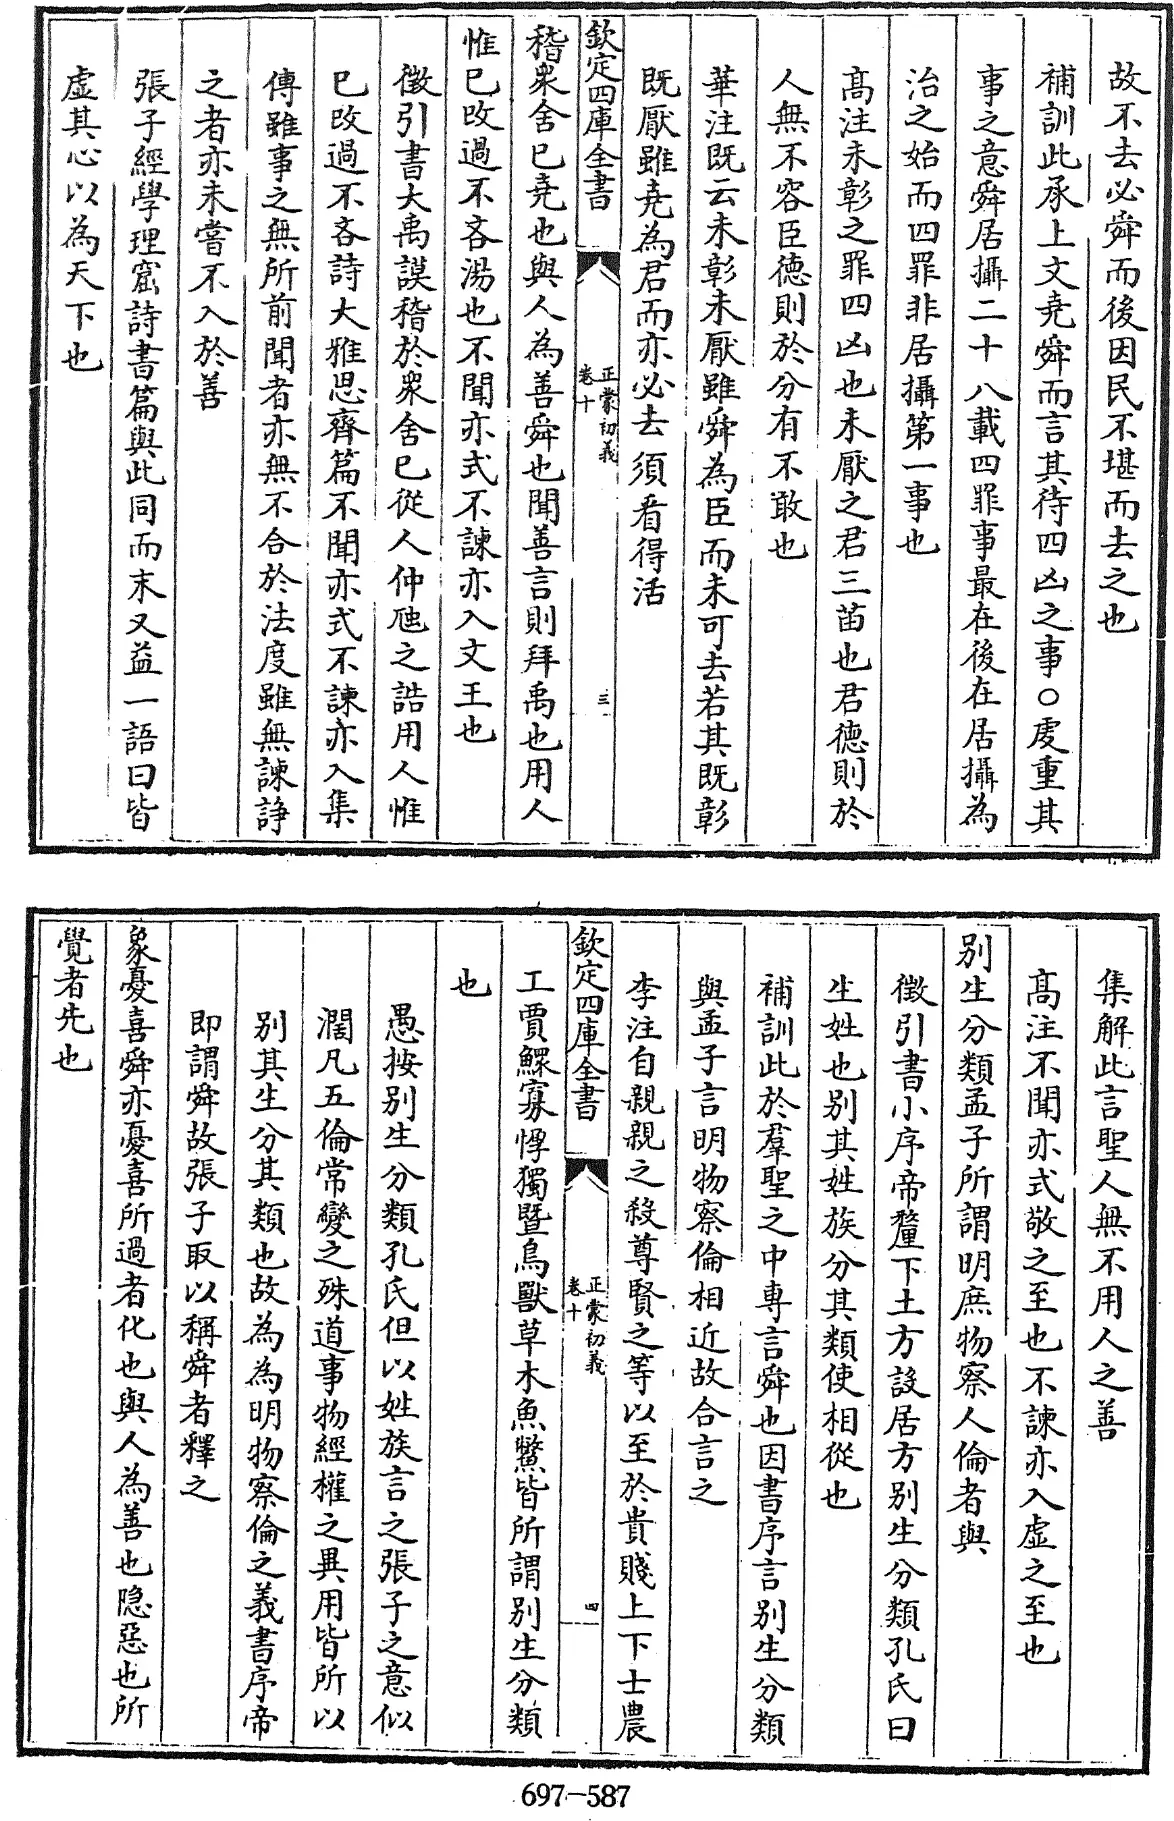 故不去必舜而後因民不堪而去之也
補訓此承上文堯舜而言其待四凶之事○虔重其
事之意舜居攝二十八載四罪事最在後在居攝為
治之始而四罪非居攝第一事也
高注未彰之罪四凶也未厭之君三苗也君德則於
人無不容臣德則於分有不敢也
華注既云未彰未厭雖舜為臣而未可去若其既彰
既厭雖堯為君而亦必去須看得活
欽定四庫全書
正蒙初義
卷十
三
稽衆舍已堯也與人為善舜也聞善言則拜禹也用人
惟已改過不吝湯也不聞亦式不諫亦入文王也
徵引書大禹謨稽於衆舍已從人仲虺之誥用人惟
已改過不吝詩大雅思齊篇不聞亦式不諫亦入集
傳雖事之無所前聞者亦無不合於法度雖無諫諍
之者亦未嘗不入於善
張子經學理窟詩書篇與此同而末又益一語曰皆
虛其心以為天下也
集解此言聖人無不用人之善
高注不聞亦式敬之至也不諫亦入虛之至也
别生分類孟子所謂明庶物察人倫者與
徵引書小序帝釐下土方設居方别生分類孔氏曰
生姓也别其姓族分其類使相從也
補訓此於羣聖之中專言舜也因書序言别生分類
與孟子言明物察倫相近故合言之
李注自親親之殺尊賢之等以至於貴賤上下士農
欽定四庫全書
正蒙初義
卷十
四
工賈鰥寡惸獨暨鳥獸草木魚鼈皆所謂别生分類
也
愚按别生分類孔氏但以姓族言之張子之意似
濶凡五倫常變之殊道事物經權之異用皆所以
别其生分其類也故為為明物察倫之義書序帝
即謂舜故張子取以稱舜者釋之
象憂喜舜亦憂喜所過者化也與人為善也隐惡也所
覺者先也
697-587